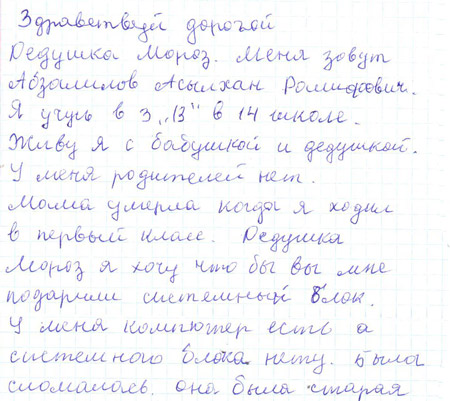 Здравствуй дорогой
Дедушка Мороз. Меня зовут
Абзамилов Асылхан Рамифович.
Я учусь в 3 „В" в 14 школе.
Живу я с бабушкой и дедушкой.
У меня родителей нет.
Мама умерла когда я ходил
в первый класс. Дедушка
Мороз я хочу что бы вы мне
подарили системный блок.
У меня компютер есть а
системного блока нету. была
сломалась. она была старая